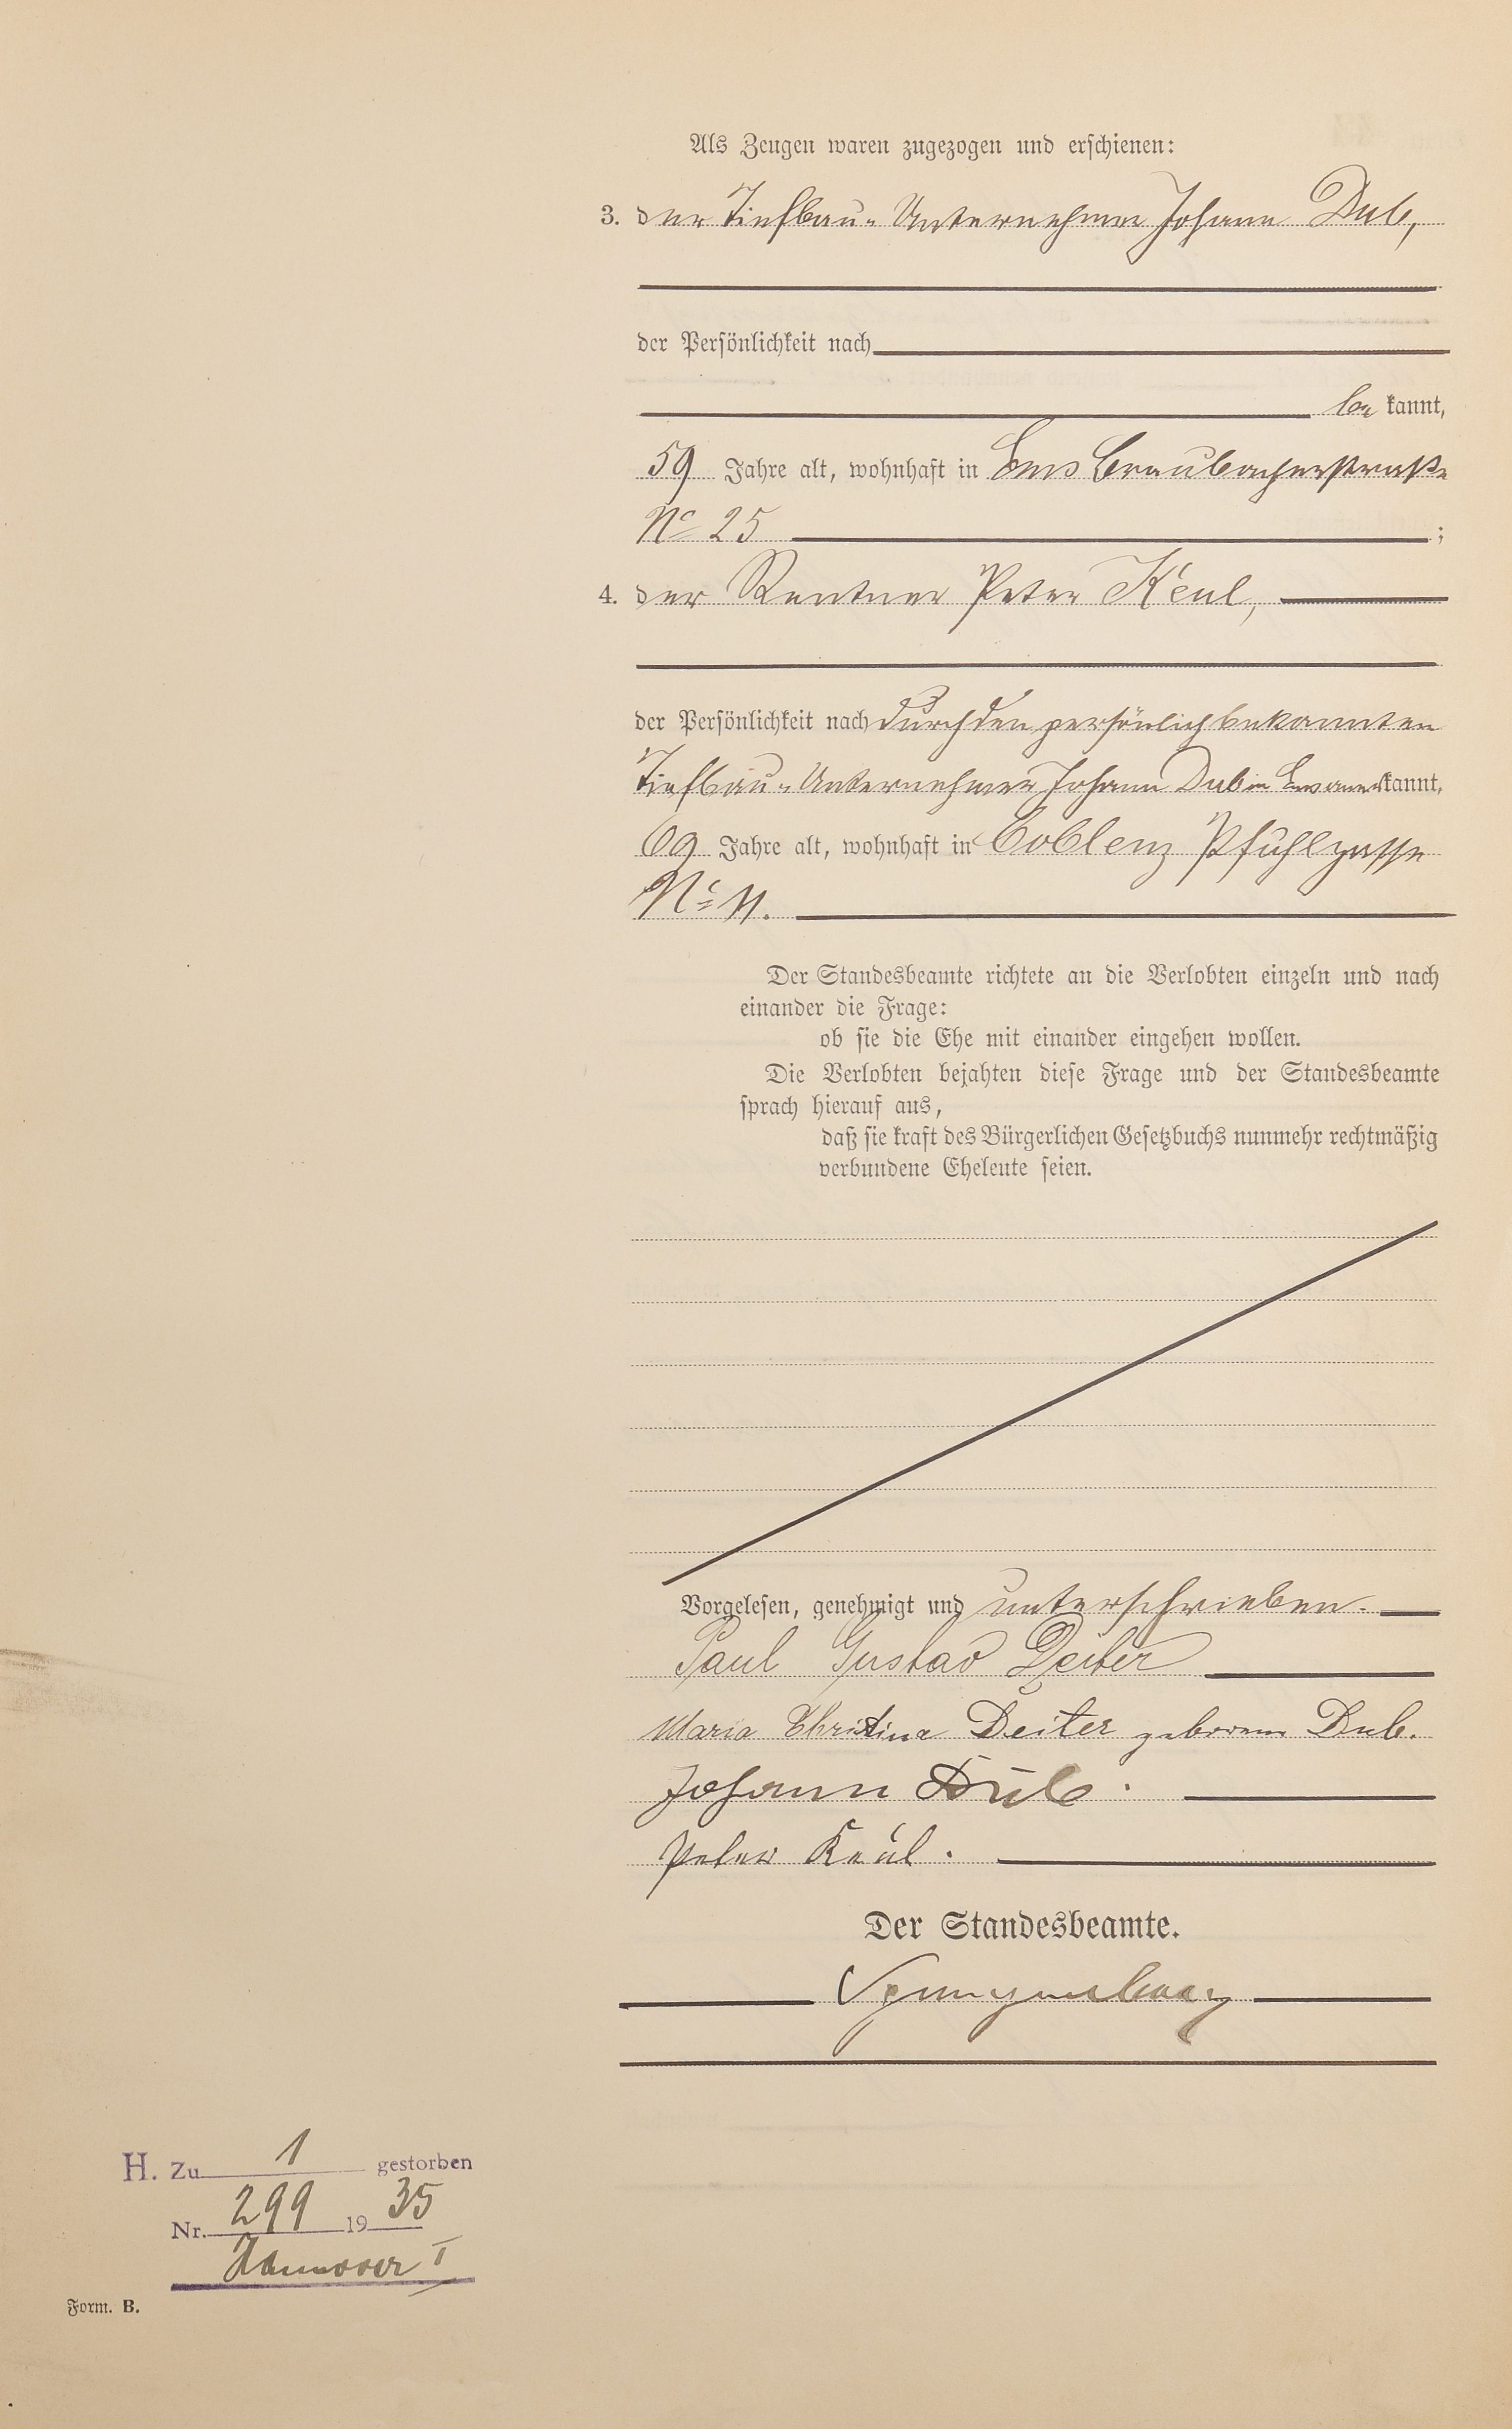 Als Zeugen waren zugezogen und erschienen:
3. der Tiefbau-Unternehmer Johann Dub,
der Persönlichkeit nach
be kannt,
59 Jahre alt, wohnhaft in Ems Braubacherstraße
No 25 ;
4. der Rentner Peter Keul,
der Persönlichkeit nach durch den persönlich bekannten
Tiefbau-Unternehmer Johann Dub in Ems anerkannt,
69 Jahre alt, wohnhaft in Coblenz Pfuhlgasse
No 11.
Der Standesbeamte richtete an die Verlobten einzeln und nach
einander die Frage:
ob sie die Ehe mit einander eingehen wollen.
Die Verlobten bejahten diese Frage und der Standesbeamte
sprach hierauf aus,
daß sie kraft des Bürgerlichen Gesetzbuchs nunmehr rechtmäßig
verbundene Eheleute seien.
Vorgelesen, genehmigt und unterschrieben.
Paul Gustav Deiter
Maria Christina Deiter geborene Dub.
Johann Dub.
Peter Keul.
Der Standesbeamte.
H. Zu 1 gestorben
Nr. 299 1935
Hannover I
Form. B.